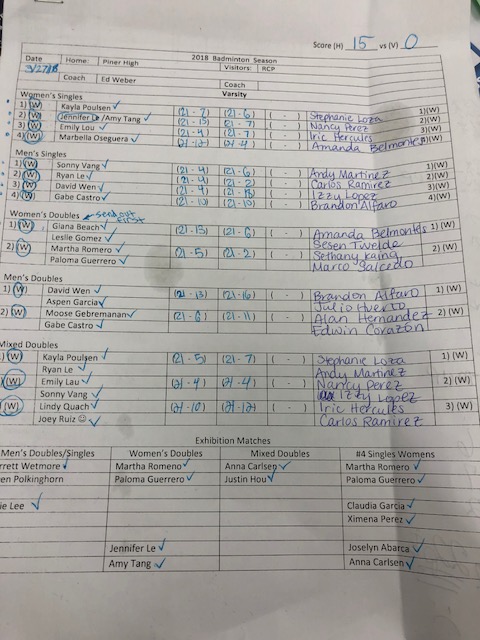 Score (H) 15 vs (V) 0
2018 Badminton Season
Date 3/27/18 Home: Piner High Visitors: RCP
Coach Ed Weber Coach
Women's Singles Varsity
1) (W) Kayla Poulsen ✓ (21 - 7) (21 - 6) ( - ) Stephanie Loza 1)(W)
2) (W) Jennifer Le/Amy Tang ✓ (21 - 13) (21 - 7) ( - ) Nancy Perez 2)(W)
3) (W) Emily Lau ✓ (21 - 4) (21 - 7) ( - ) Iric Hercules 3)(W)
4) (W) Marbella Oseguera ✓ (21 - 12) (21 - 4) ( - ) Amanda Belmontes 4)(W)
Men's Singles
1) (W) Sonny Vang ✓ (21 - 4) (21 - 6) ( - ) Andy Martinez 1)(W)
2) (W) Ryan Le ✓ (21 - 4) (21 - 2) ( - ) Carlos Ramirez 2)(W)
3) (W) David Wen ✓ (21 - 4) (21 - ) ( - ) Izzy Lopez 3)(W)
4) (W) Gabe Castro ✓ (21 - 10) (21 - 10) ( - ) Brandon Alfaro 4)(W)
Women's Doubles seed out first
1) (W) Giana Beach ✓ (21 - 15) (21 - 6) ( - ) Amanda Belmontes 1) (W)
Leslie Gomez ✓ Sesen Twelde
2) (W) Martha Romero ✓ (21 - 5) (21 - 2) ( - ) Sethany Kaing 2) (W)
Paloma Guerrero ✓ Marco Salcedo
Men's Doubles
1) (W) David Wen ✓ (21 - 13) (21 - 16) ( - ) Brandon Alfaro 1) (W)
Aspen Garcia ✓ Julio Huerto
2) (W) Moose Gebremanan ✓ (21 - 6) (21 - 11) ( - ) Alan Hernandez 2) (W)
Gabe Castro ✓ Edwin Corazón
Mixed Doubles
1) (W) Kayla Poulsen ✓ (21 - 5) (21 - 7) ( - ) Stephanie Loza 1) (W)
Ryan Le ✓ Andy Martinez
(W) Emily Lau ✓ (21 - 4) (21 - 4) ( - ) Nancy Perez 2) (W)
Sonny Vang ✓ Izzy Lopez
(W) Lindy Quach ✓ (21 - 10) (21 - 12) ( - ) Iric Hercules 3) (W)
Joey Ruiz ☺ ✓ Carlos Ramirez
Exhibition Matches
Men's Doubles/Singles Women's Doubles Mixed Doubles #4 Singles Womens
rrett Wetmore ✓ Martha Romeno ✓ Anna Carlsen ✓ Martha Romero ✓
en Polkinghorn Paloma Guerrero ✓ Justin Hou ✓ Paloma Guerrero ✓
ie Lee ✓ Claudia Garcia ✓
Ximena Perez ✓
Jennifer Le ✓ Joselyn Abarca ✓
Amy Tang ✓ Anna Carlsen ✓